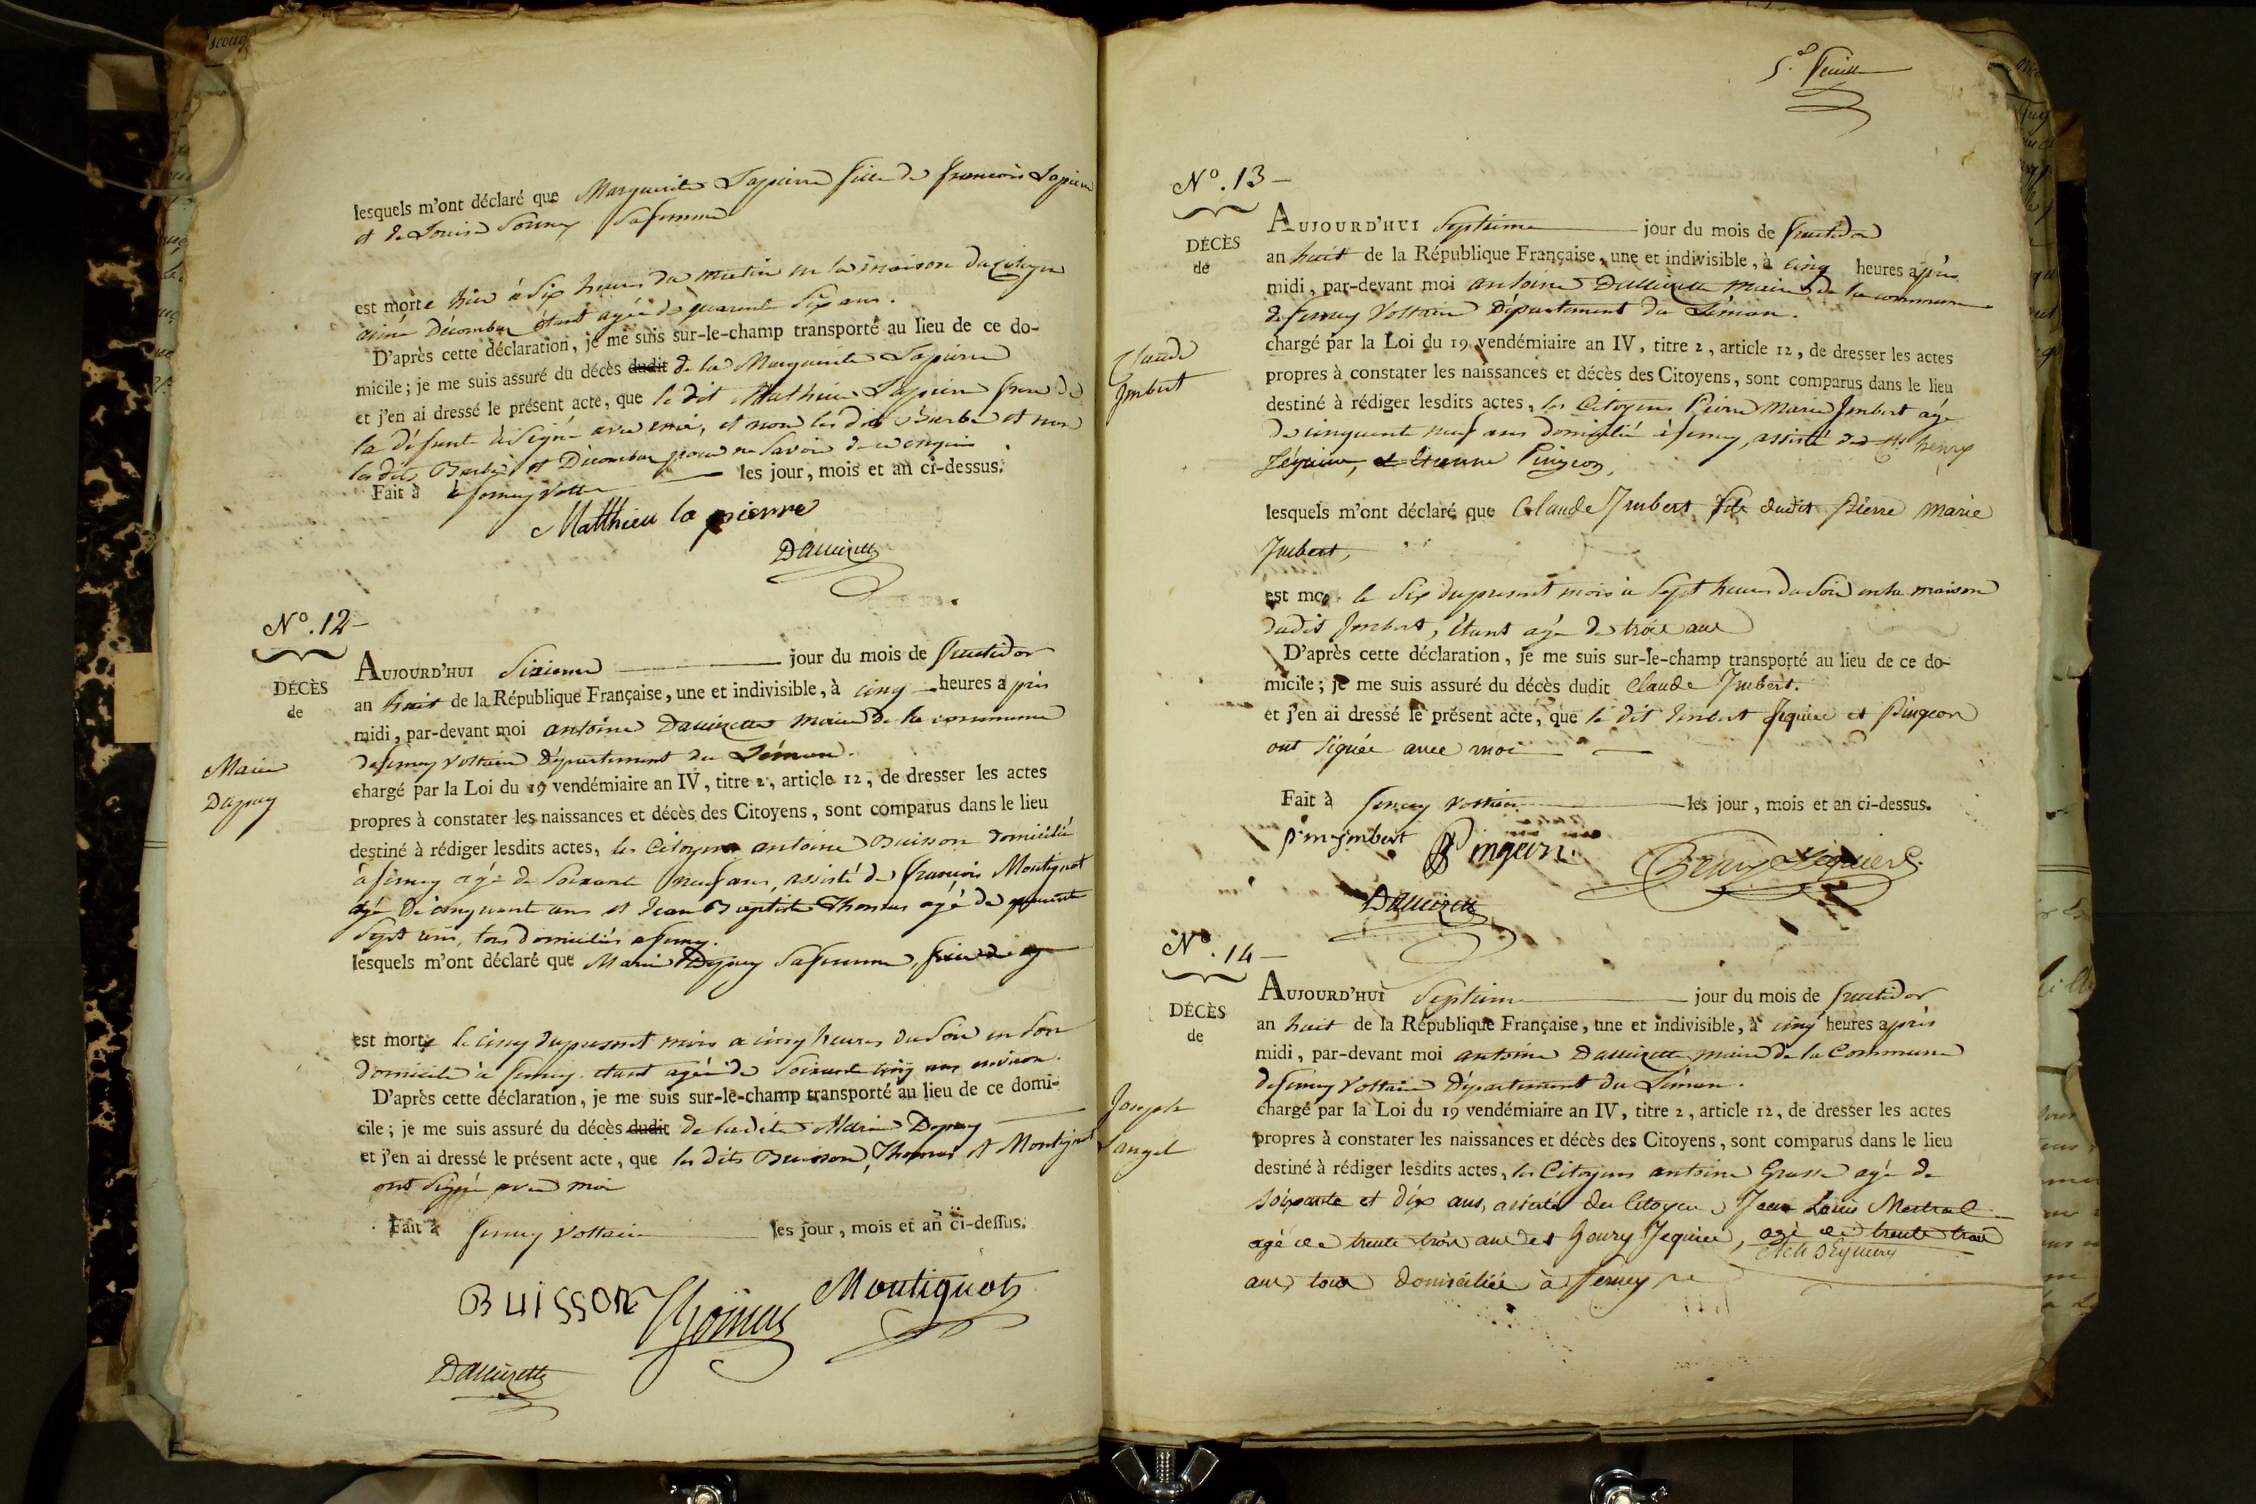 lesquels m'ont déclaré que Marguerite Lapierre fille de françois Lapierre
et de Louise sa femme
est morte hier à Six heures du matin en la maison du Citoyen
aimé Décombaz étant agée de quarente Six ans.
D'après cette déclaration, je me suis sur-le-champ transporté au lieu de ce do-
micile; je me suis assuré du décès dudit de la Marguerite Lapierre
et j'en ai dressé le présent acte, que le dit Mathieu Lapierre frere de
la défunte à Signé avec moi, et non les dits et non
les dits et Décombaz pour ne Savoir de ce enquis
Fait à à ferney Volt les jour, mois et an ci-dessus.
Matthieu la pierre
Dauizette
N°. 12
DÉCÈS
de
Marie
Dupuy
AUJOURD'HUI Sixieme jour du mois de fructidor
an huit de la République Française, une et indivisible, à cinq heures après
midi, par-devant moi antoine Dauizette maire de la commune
de ferney Voltaire Département du Léman.
chargé par la Loi du 19 vendémiaire an IV, titre 2, article 12, de dresser les actes
propres à constater les naissances et décès des Citoyens, sont comparus dans le lieu
destiné à rédiger lesdits actes, les Citoyens antoine Buisson domicilié
à ferney agé de Soixante neuf ans, assisté de françois Montignot
agé de cinquante ans et Jean Baptiste Thomas agé de quarente
Sept ans, tous domiciliés a ferney.
lesquels m'ont déclaré que Marie Dupuy Sa femme, fille de
est morte le cinq du present mois a cinq heures du Soir en Son
domicile à ferney étant agée de Soixante cinq ans environ.
D'après cette déclaration, je me suis sur-le-champ transporté au lieu de ce domi-
cile; je me suis assuré du décès dudit de ladite Marie Dupuy
et j'en ai dressé le présent acte, que les dits Buisson, Thomas et Montignot
ont Signé avec moi
Fait à ferney Voltaire les jour, mois et an ci-dessus.
BUISSON Thomas Montignot
Dauizette
5.e feuille
N°. 13
DÉCÈS
de
Claude
Imbert
AUJOURD'HUI Septieme jour du mois de fructidor
an huit de la République Française, une et indivisible, à cinq heures après
midi, par-devant moi antoine Dauizette maire de la commune
de ferney Voltaire Département du Léman.
chargé par la Loi du 19 vendémiaire an IV, titre 2, article 12, de dresser les actes
propres à constater les naissances et décès des Citoyens, sont comparus dans le lieu
destiné à rédiger lesdits actes, les Citoyens Pierre Marie Imbert agé
de cinquante neuf ans domicilié à ferney, assisté des henry
Jéquier, et Etienne Pingeon,
lesquels m'ont déclaré que Claude Imbert fils dudit Pierre Marie
Imbert,
est mo le Six du present mois à Sept heures du Soir en la maison
dudit Imbert, étant agé de trois ans
D'après cette déclaration, je me suis sur-le-champ transporté au lieu de ce do-
micile; je me suis assuré du décès dudit Claude Imbert.
et j'en ai dressé le présent acte, que le dit Imbert Jequier et Pingeon
ont signée avec moi
Fait à ferney Voltaire les jour, mois et an ci-dessus.
p m imbert Pingeon henry Jequier
Dauizette
N°. 14
DÉCÈS
de
Joseph
Langel
AUJOURD'HUI Septieme jour du mois de fructidor
an huit de la République Française, une et indivisible, à cinq heures après
midi, par-devant moi antoine Dauizette maire de la Commune
de ferney Voltaire Département du Léman.
chargé par la Loi du 19 vendémiaire an IV, titre 2, article 12, de dresser les actes
propres à constater les naissances et décès des Citoyens, sont comparus dans le lieu
destiné à rédiger lesdits actes, les Citoyens antoine Grasse agé de
soixante et dix ans, assisté du Citoyen Jean Louis Mestral
agé de trente trois ans et henry Jequier, agé de trente trois
ans, tous domiciliée à ferney